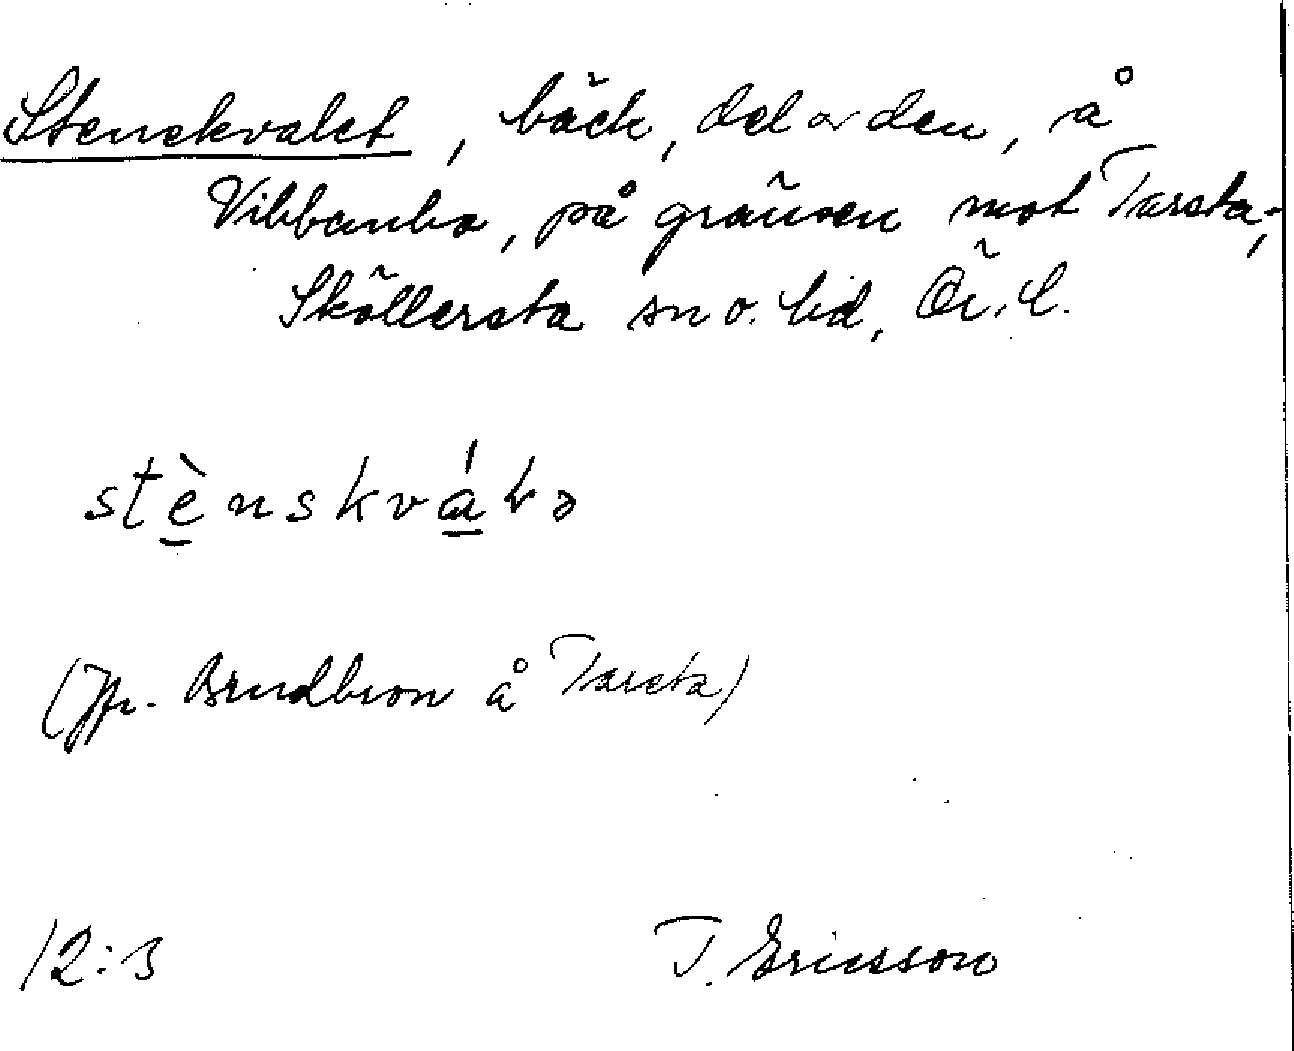 Stenskvalet, bäck, del av den, å
Vibbonbo, på gränsen mot Tarsta,
Sköllersta sn o. hd, Ör. l.
stènskválə
(Jfr. Brudbron å Tarsta)
12:3
T. Ericsson